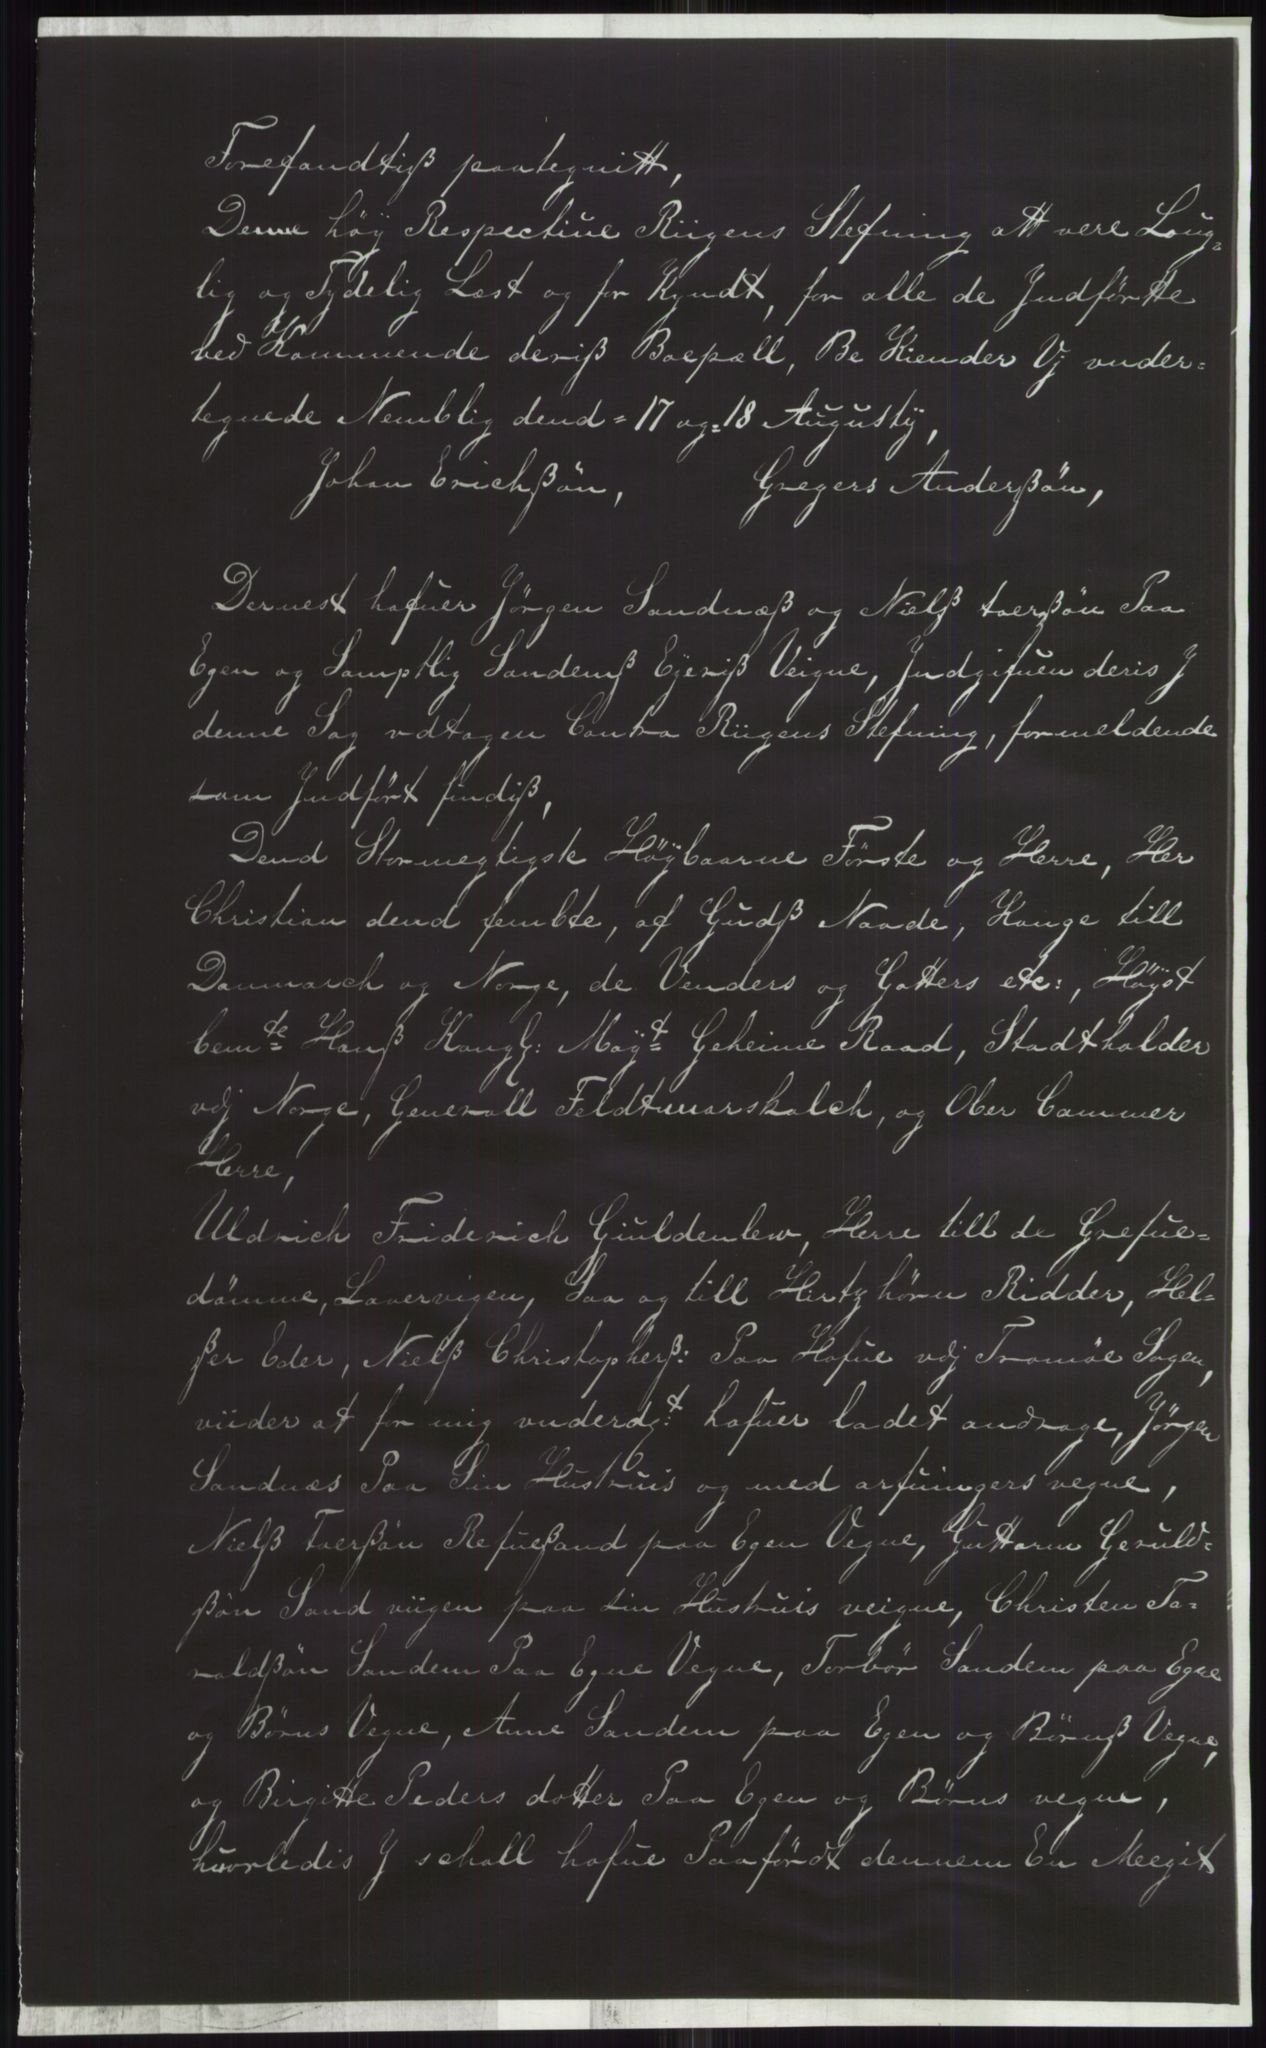 Forefandtiß paategnitt,
Denne höy Respectiue Riigens Stefning att vere Loug=
lig og Tydelig Læst og for Kyndt, for alle de Jndförtte
ved Kommende deriß Boepæll, Be Kiender Vj vnder=
tegnede Nemblig dend = 17 og = 18 Augusty,
Johan Erichßön, Gregers Anderßön,
Dernest hafuer Jörgen Sandnæß og Nielß taerßön Paa
Egen og Samptlig Sandemß Eÿeriß Veigne, Jndgifuen deris J
denne Sag vdtagen Contra Riigens Stefning, formeldende
som Jndfört findiß,
Dend Stormegtigste Höÿbaarne Förste og Herre, Her
Christian dend fembte, af Gudß Naade, Konge till
Danmarch og Norge, de Venders og Gotters etc:, Höÿst
bem te Hanß Kongl: Maÿ t Geheime Raad, Stadtholder
vdj Norge, Generall Feldtmarskalck, og Ober Cammer
Herre,
Uldrich Friderich Giuldenlew, Herre till de Grefue=
dömme, Laaervigen, Saa og till Hirtzhörn Ridder, Hel=
ßer Eder, Nielß Christopherß: Paa Hofue vdj Tromöe Sogen,
viider at for mig vnderd t: hafuer ladet andrage, Jörgen
Sandnæs Paa Sin Hustruis og med arfuingers vegne,
Nielß Taerßön Refueßand paa Egen Vegne, Guttorm Geruld=
ßön Sand viigen paa sin Hustruis veigne, Christen Ta=
raldßön Sandem Paa Egne Vegne, Torbör Sandem paa Egne
og Börns Vegne, Anne Sandem paa Egen og Börnß Vegne,
og Birgitte Peders dotter Paa Egen og Börns vegne,
huorledis J schall hafue Paafördt dennem En Meegit